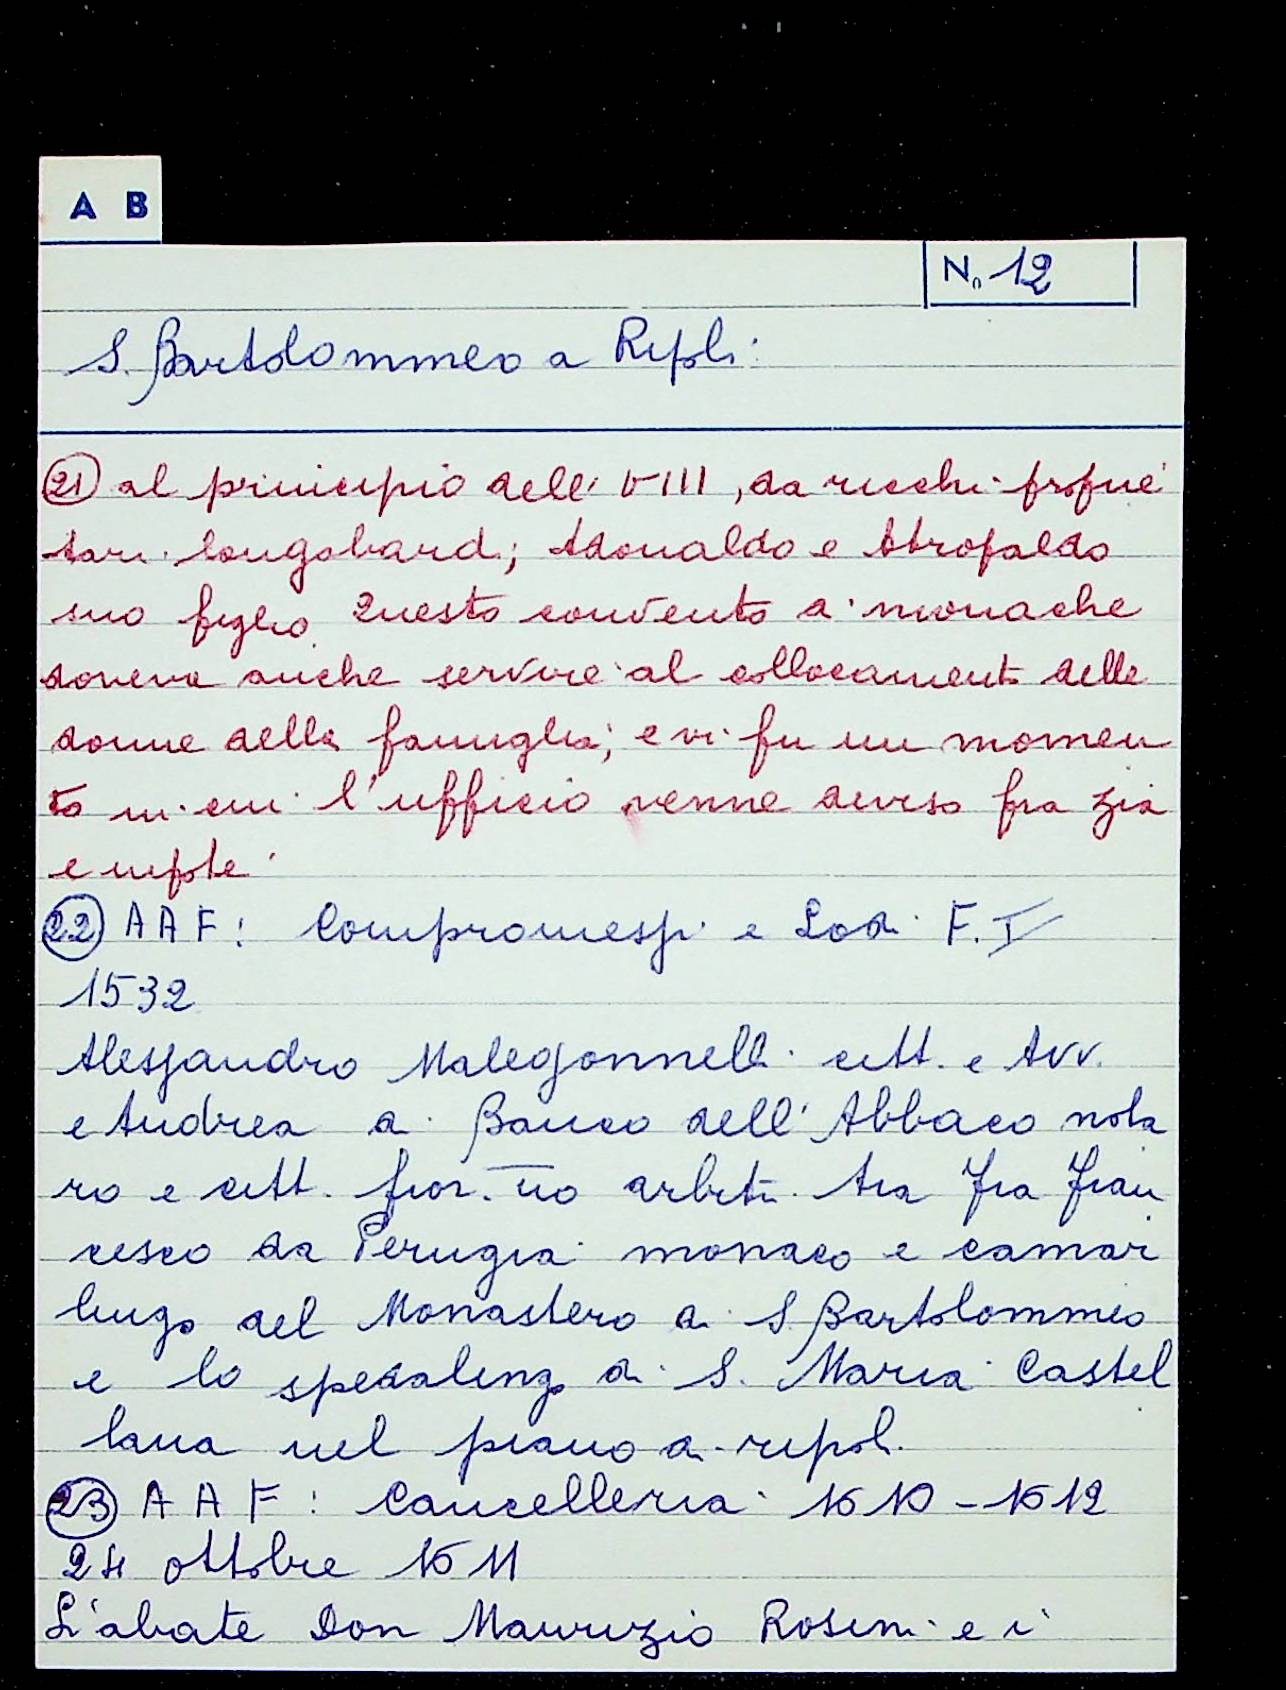 A B
N. 12
S. Bartolommeo a Ripoli
21 al principio dell' VIII, da ricchi proprie
tari longobardi; Adonaldo e Atropaldo
suo figlio. Questo convento di monache
doveva anche servire al collocamento delle
donne della famiglia; e vi fu un momen
to in cui l'ufficio venne diviso fra zia
e nipote
22 AAF: Compromessi e Lodi F. I
1532
Alessandro Malegonnelli citt. e Avv.
e Andrea di Banco dell'Abbaco nota
ro e citt. fior.no arbitri tra Fra Fran
cesco da Perugia monaco e camar
lingo del Monastero di S. Bartolommeo
e lo spedalingo di S. Maria Castel
lana nel piano di ripoli
23 AAF: Cancelleria 1610-1612
24 ottobre 1611
L'abate Don Maurizio Rosini e i